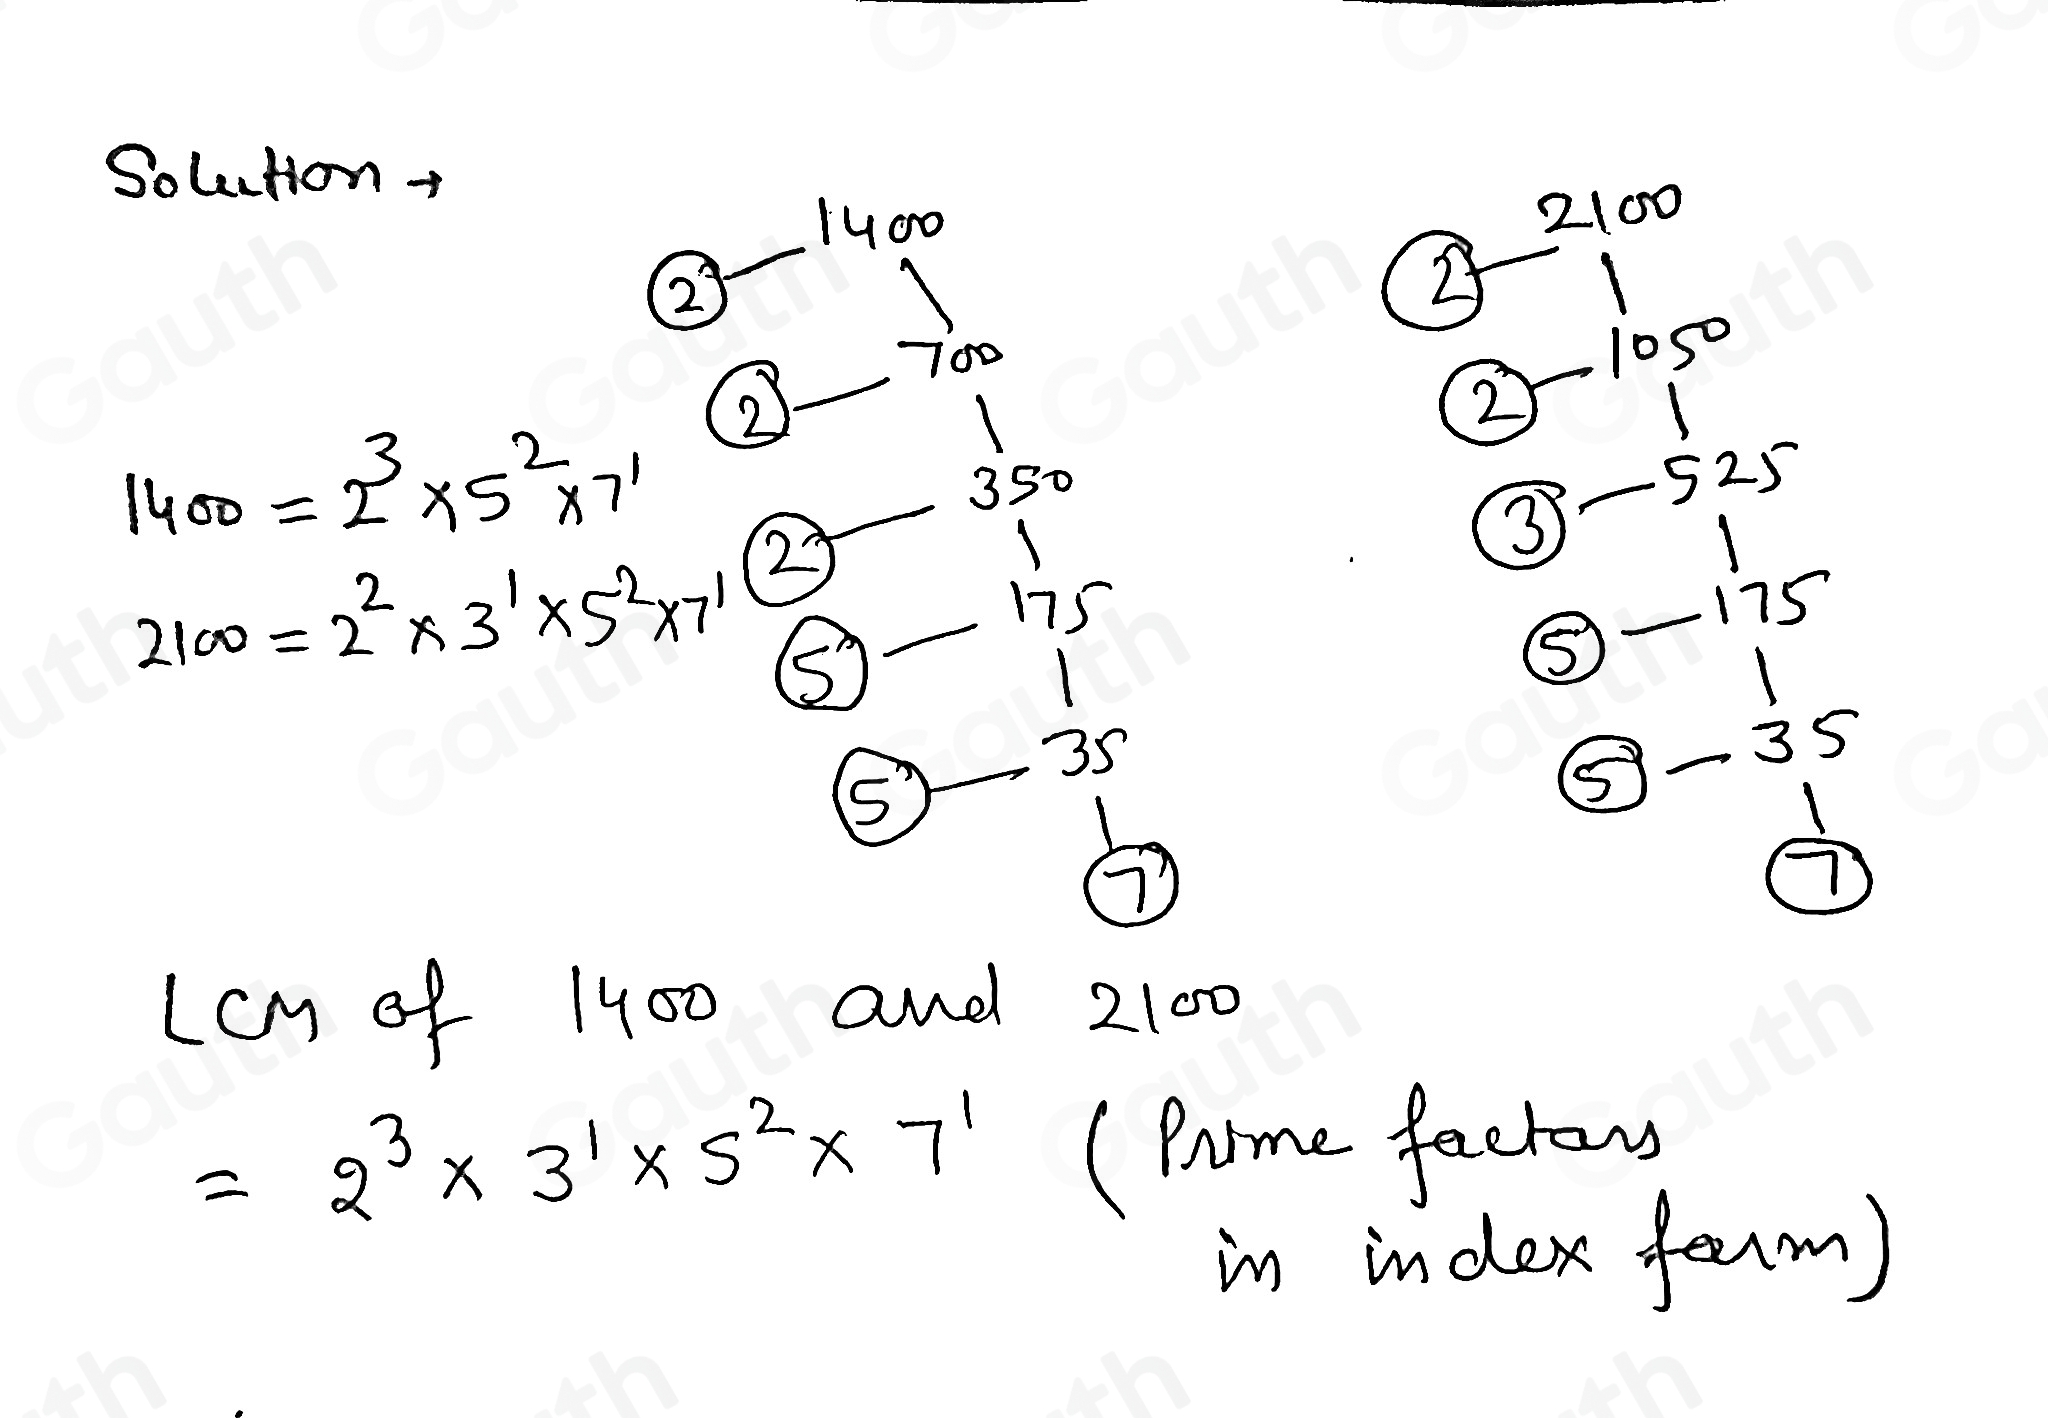 Solution →
1400
2
700
2
350
2
175
5
35
5
7
2100
2
1050
2
525
3
175
5
35
5
7
1400 = 2³ × 5² × 7¹
2100 = 2² × 3¹ × 5² × 7¹
LCM of 1400 and 2100
= 2³ × 3¹ × 5² × 7¹ (Prime factors
in index form)
Gauth